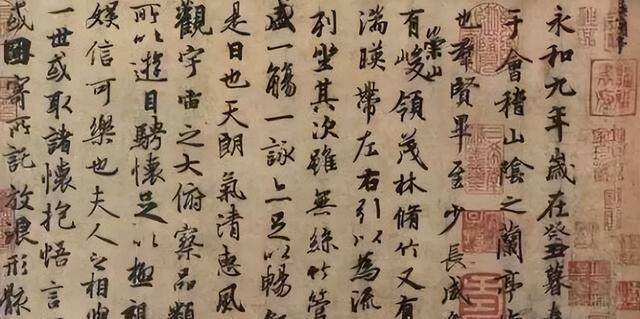 永和九年歲在癸丑暮
于會稽山陰之蘭亭
也羣賢畢至少長咸
有崇山峻領茂林脩竹又有
湍暎帶左右引以為流
列坐其次雖無絲竹管
盛一觴一詠亦足以暢
是日也天朗氣清惠風
觀宇宙之大俯察品類
所以遊目騁懷足以極視
娛信可樂也夫人之相與
一世或取諸懷抱悟言
或因寄所託放浪形骸